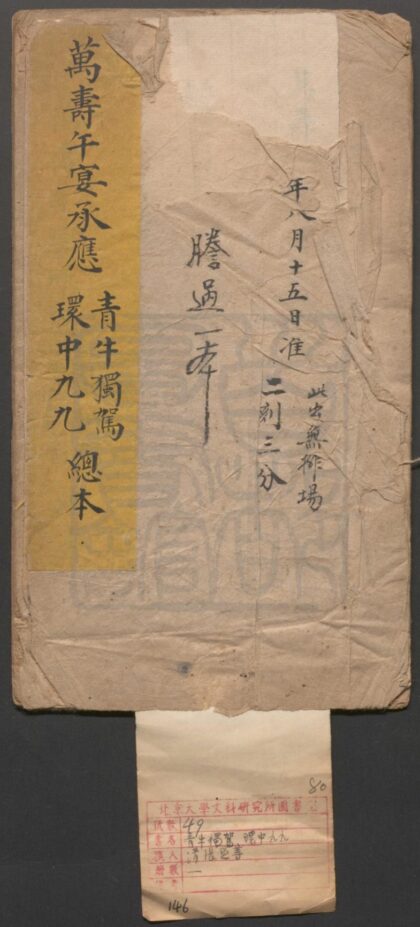 萬壽午宴承應
青牛獨駕
環中九九
總本
年八月十五日准
二刻三分
此出無排場
謄過一本
80
北京大學文科研究所圖書
號數 49
書名 青牛獨駕、環中九九
撰人 清隱宦等
冊數 一
146